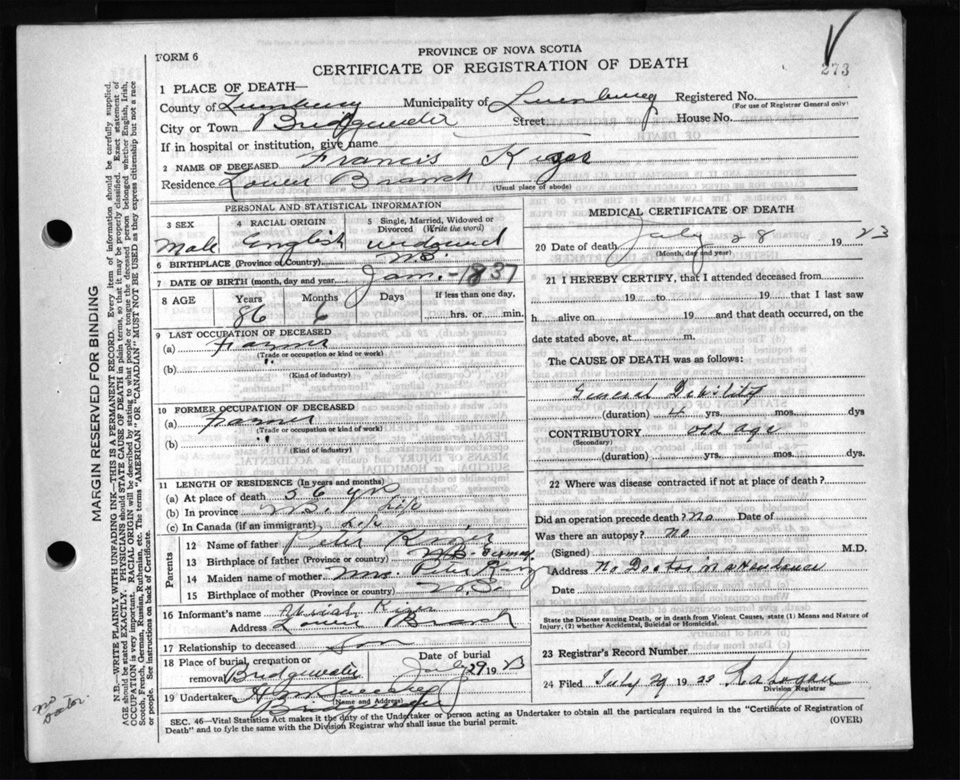 FORM 6
PROVINCE OF NOVA SCOTIA
CERTIFICATE OF REGISTRATION OF DEATH
273
1 PLACE OF DEATH—
County of Lunenburg Municipality of Lunenburg Registered No.
(For use of Registrar General only)
City or Town Bridgewater Street House No.
If in hospital or institution, give name
2 NAME OF DECEASED Francis
Residence Lower Branch
(Usual place of abode)
PERSONAL AND STATISTICAL INFORMATION
3 SEX 4 RACIAL ORIGIN 5 Single, Married, Widowed or Divorced (Write the word)
Male English widowed
6 BIRTHPLACE (Province or Country) N.S.
7 DATE OF BIRTH (month, day and year) Jan.-1837
8 AGE Years Months Days If less than one day,
86 6 hrs. or min.
9 LAST OCCUPATION OF DECEASED
(a) Farmer
(Trade or occupation or kind or work)
(b) "
(Kind of industry)
10 FORMER OCCUPATION OF DECEASED
(a) Farmer
(Trade or occupation or kind or work)
(b) "
(Kind of industry)
11 LENGTH OF RESIDENCE (In years and months)
(a) At place of death 56 yrs
(b) In province N.S. Life
(c) In Canada (if an immigrant) Life
Parents
12 Name of father Peter
13 Birthplace of father (Province or country) N.S.
14 Maiden name of mother Mrs. Peter
15 Birthplace of mother (Province or country) N.S.
16 Informant's name
Address Lower Branch
17 Relationship to deceased Son
18 Place of burial, cremation or removal Bridgewater Date of burial July 29 1923
19 Undertaker
(Name and Address)
Bridgewater
MEDICAL CERTIFICATE OF DEATH
20 Date of death July 28 1923
(Month, day and year)
21 I HEREBY CERTIFY, that I attended deceased from
19 to 19 that I last saw
h alive on 19 and that death occurred, on the
date stated above, at m.
The CAUSE OF DEATH was as follows:
General Debility
(duration) 4 yrs. mos. dys
CONTRIBUTORY old age
(Secondary)
(duration) yrs. mos. dys.
22 Where was disease contracted if not at place of death?
Did an operation precede death? No Date of
Was there an autopsy? No
(Signed) M.D.
Address No Doctor in attendance
Date
State the Disease causing Death, or in death from Violent Causes, state (1) Means and Nature of
Injury, (2) whether Accidental, Suicidal or Homicidal.
23 Registrar's Record Number
24 Filed July 29 1923
Division Registrar
SEC. 46—Vital Statistics Act makes it the duty of the Undertaker or person acting as Undertaker to obtain all the particulars required in the "Certificate of Registration of
Death" and to fyle the same with the Division Registrar who shall issue the burial permit. (OVER)
MARGIN RESERVED FOR BINDING
N.B.—WRITE PLAINLY WITH UNFADING INK—THIS IS A PERMANENT RECORD. Every item of information should be carefully supplied.
AGE should be stated EXACTLY. PHYSICIANS should STATE CAUSE OF DEATH in plain terms, so that it may be properly classified. Exact statement of
OCCUPATION is very important. RACIAL ORIGIN will be described by stating to what people or tongue the deceased person belonged whether English, Irish,
Scotch, French, German, Russian, Ruthenian, etc. The terms "AMERICAN" OR "CANADIAN" MUST NOT BE USED as they express citizenship but not a race
or people. See instructions on back of Certificate.
no
Doctor